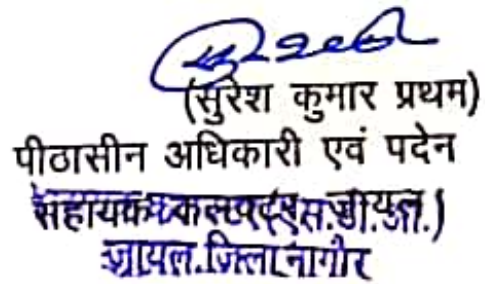 (सुरेश कुमार प्रथम)
पीठासीन अधिकारी एवं पदेन
सहायक कलक्टर जायल
जायल, जिला नागौर